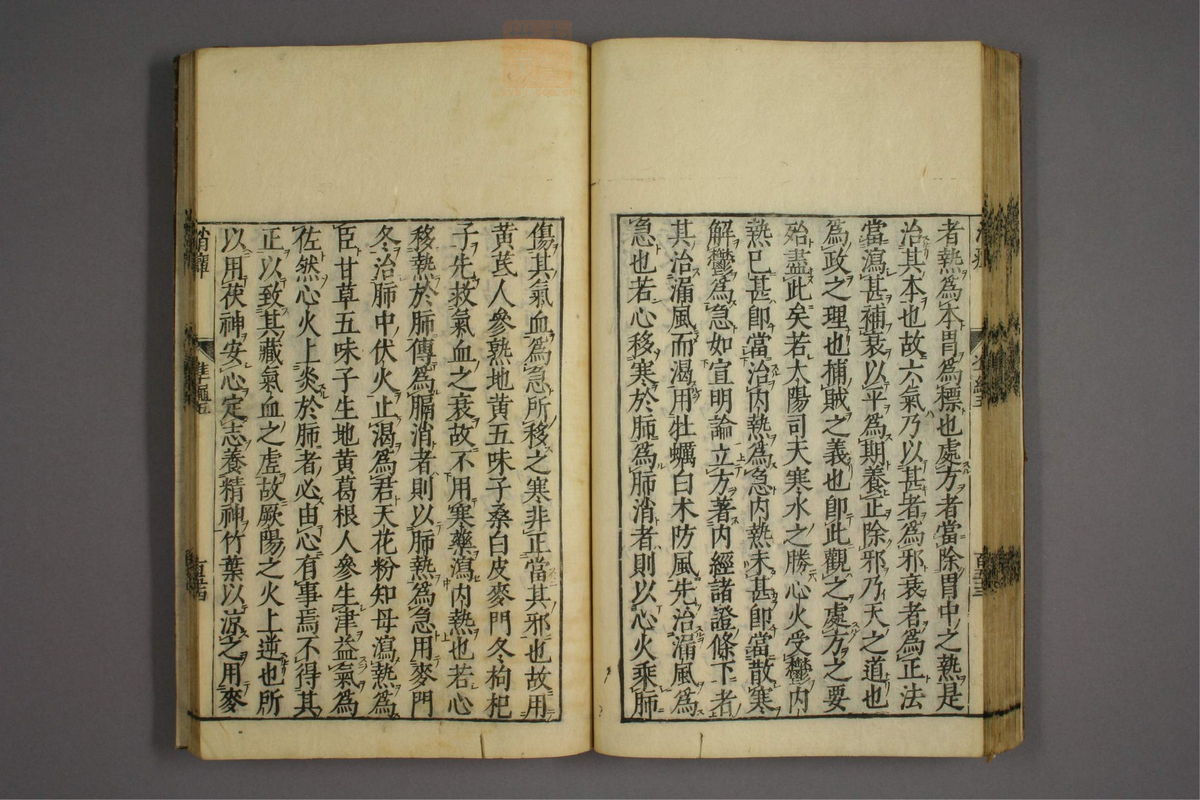 者熱爲本胃爲標也處方者當除胃中之熱是
治其本也故六氣乃以甚者爲邪衰者爲正法
當瀉甚補衰以平爲期養正除邪乃天之道也
爲政之理也捕賊之義也即此觀之處方之要
殆盡此矣若太陽司天寒水之勝心火受鬱內
熱已甚即當治內熱爲急內熱未甚即當散寒
解鬱爲急如宣明論立方著內經諸證條下者
其治漏風而渴用牡蠣白术防風先治漏風爲
急也若心移寒於肺爲肺消者則以心火乘肺
傷其氣血爲急所移之寒非正當其邪也故用
黃芪人參熟地黃五味子桑白皮麥門冬枸杞
子先救氣血之衰故不用寒藥瀉內熱也若心
移熱於肺傳爲膈消者則以肺熱爲急用麥門
冬治肺中伏火止渴爲君天花粉知母瀉熱爲
臣甘草五味子生地黃葛根人參生津益氣爲
佐然心火上炎於肺者必由心有事焉不得其
正以致其藏氣血之虛故厥陽之火上逆也所
以用茯神安心定志養精神竹葉以凉之用麥